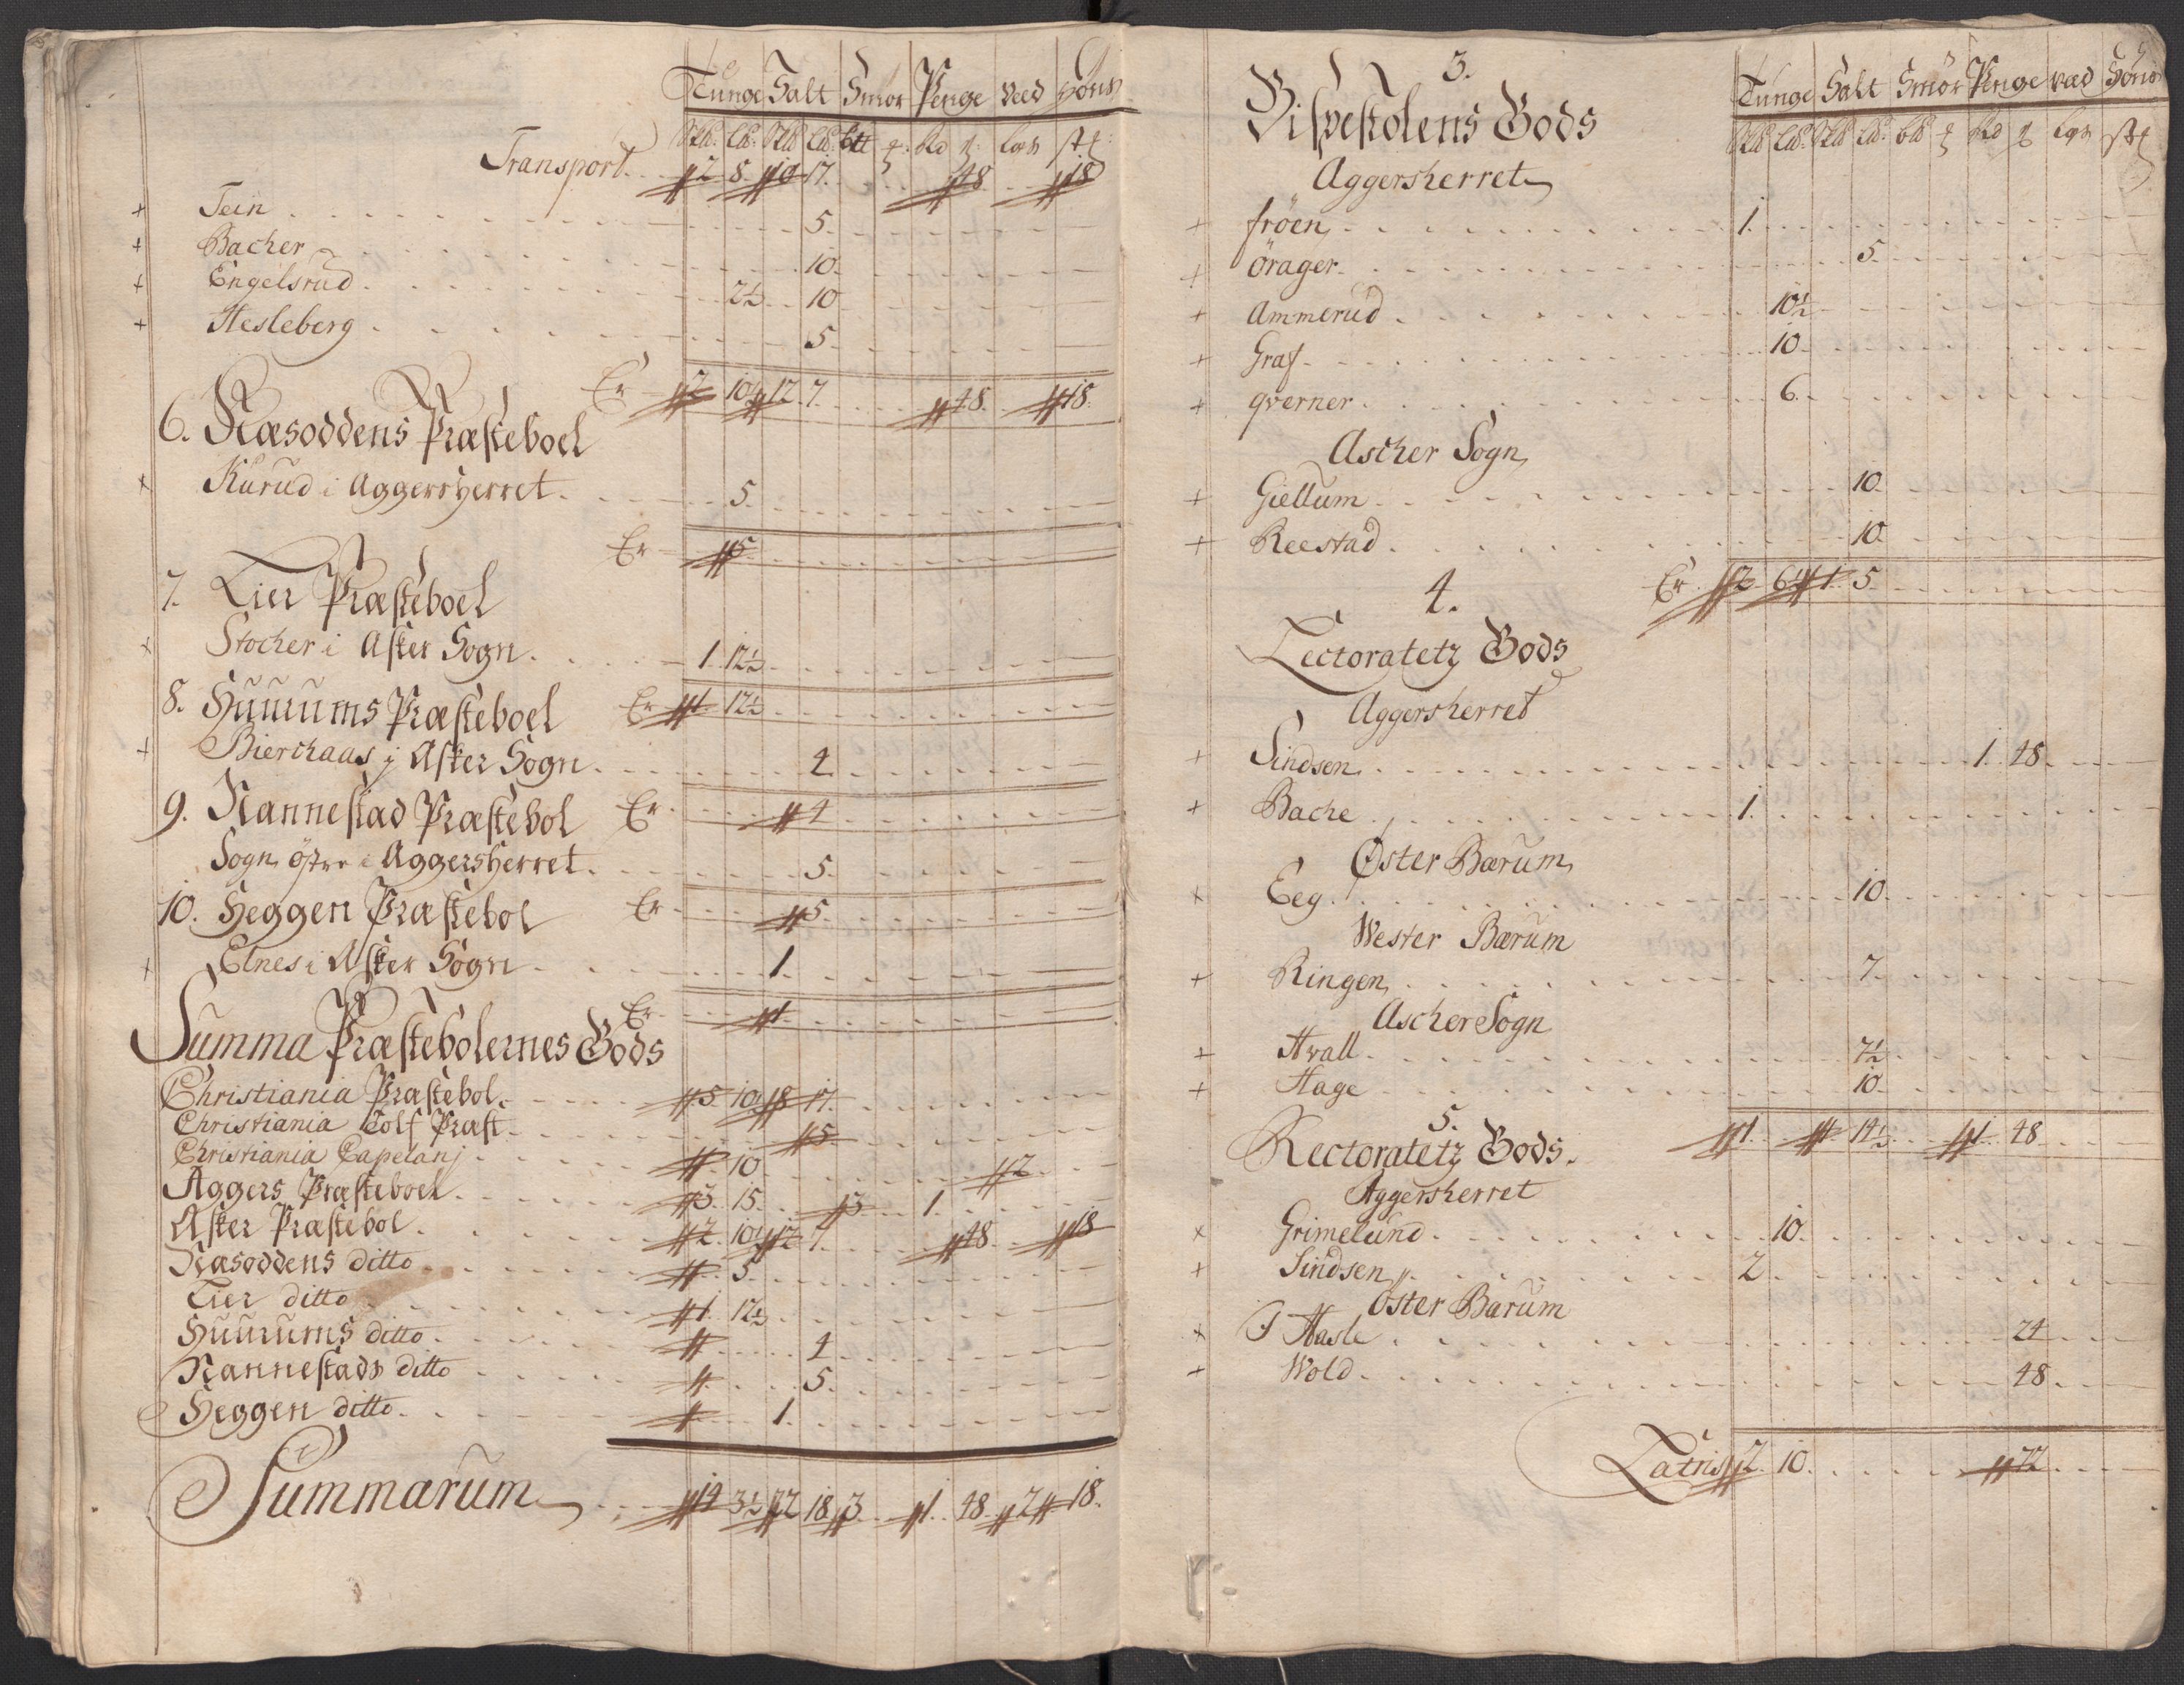 Tunge Salt Smör Penge Veed Höns
Transport 2 8 10 17 48 18
+ Tein 5
+ Bacher 10
+ Engelsrud 2½ 10
+ Hesleberg 5
Er 2 10½ 12 7 48 18
6. Næsoddens Præsteboel
+ Kurud i Aggersherret 5
Er 5
7. Lier Præsteboel
+ Stocher i Asker Sogn 1 12½
8. Huurums Præsteboel Er 1 12½
+ Bierchaas j Asker Sogn 4
9. Nannestad Præstebol Er 4
Sogn östre i Aggersherret 5
10. Heggen Præstebol Er 5
+ Elnes i Asker Sogn 1
Er 1
Summa Præstebolernes Gods
Christiania Præstebol 5 10 8 17
Christiania Tolf Præst 5
Christiania Capelanj 10 2
Aggers Præsteboel 3 15 3 1
Asker Præstebol 2 10½ 12 7 48 18
Næsoddens ditto 5
Lier ditto 1 12½
Huurums ditto 4
Nannestads ditto 5
Heggen ditto 1
Summarum 14 3½ 22 18 3 1 48 2 18
3.
Bispestolens Gods
Tunge Salt Smör Penge Veed Höns
Aggersherret
+ fröen 1
+ örager 5
+ Ammerud 10½
+ Graf 10
+ qverner 6
Ascher Sogn
+ Giellum 10
+ Reestad 10
Er 2 6½ 1 5
4.
Lectoratetz Gods
Aggersherret
+ Sindsen 1 48
+ Bache 1
Öster Bærum
+ Eeg 10
Wester Bærum
+ Ringen 7
Ascher Sogn
+ Hvall 7½
+ Hage 10
1 1 14½ 1 48
5.
Rectoratetz Gods
Aggersherret
+ Grimelund 10
+ Sindsen 2
Öster Barum
+ Hasle 24
+ Wold 48
Latris 2 10 72